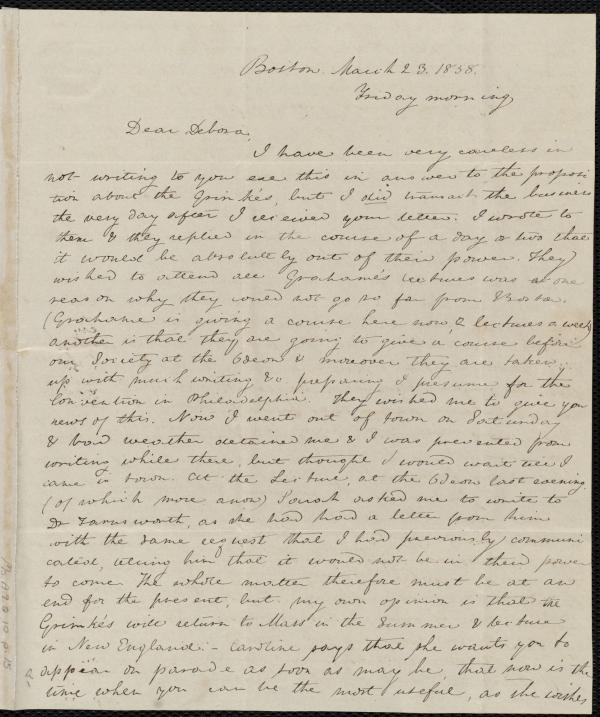 Boston. March 23. 1838.
Friday morning,
Dear Debora,
I have been very careless in
not writing to you ere this in answer to the proposi
tion about the Grimkés, but I did transact the business
the very day after I received your letter. I wrote to
them & they replied in the course of a day or two that
it would be absolutely out of their power. They
wished to attend all Grahame's lectures was one
reason why they could not go so far from Boston.
(Grahame is giving a course here now, 2 lectures a week)
another is that they are going to give a course before
our Society at the Odeon & moreover they are taken
up with much writing &c preparing I presume for the
Convention in Philadelphia. They wished me to give you
news of this. Now I went out of town on Saturday
& bad weather detained me & I was prevented from
writing while there, but thought I would wait till I
came in town. At the Lecture, at the Odeon last evening
(of which more anon) Sarah asked me to write to
Dr Farnsworth, as she had had a letter from him
with the same request that I had previously communi
cated, telling him that it would not be in their power
to come. The whole matter therefore must be at an
end for the present, but my own opinion is that the
Grimkes will return to Mass in the Summer & lecture
in New England. - Caroline says that she wants you to
appear on parade as soon as may be that now is the
time when you can be the most useful, as she wishes